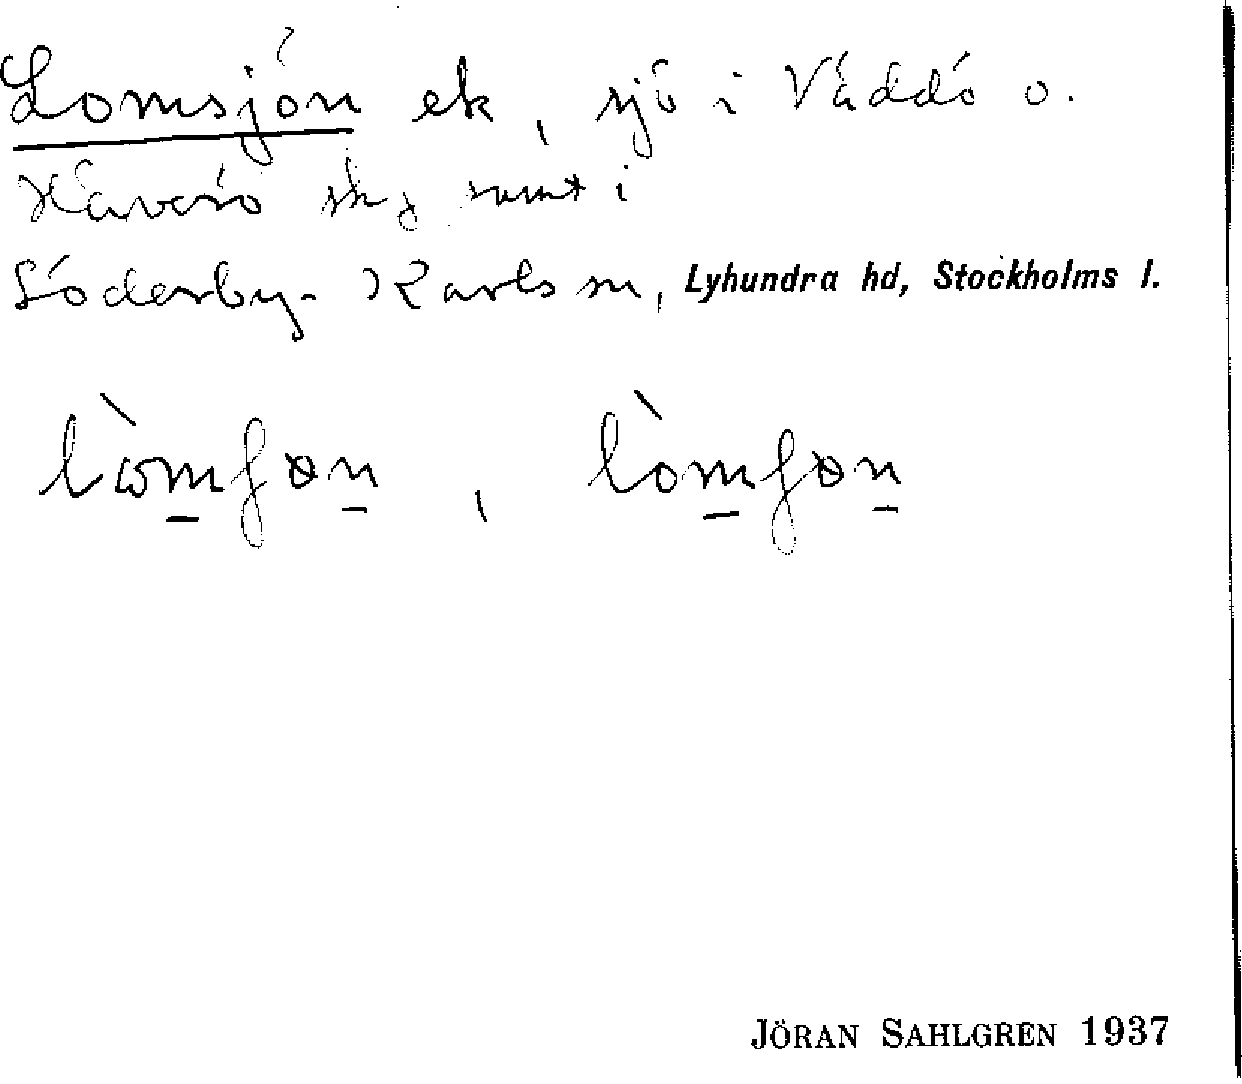 Lomsjön ek, sjö i Väddö o.
Häverö skg samt i
Söderby-Karls sn, Lyhundra hd, Stockholms l.
lòmʃøn, lòmʃøn
JÖRAN SAHLGREN 1937